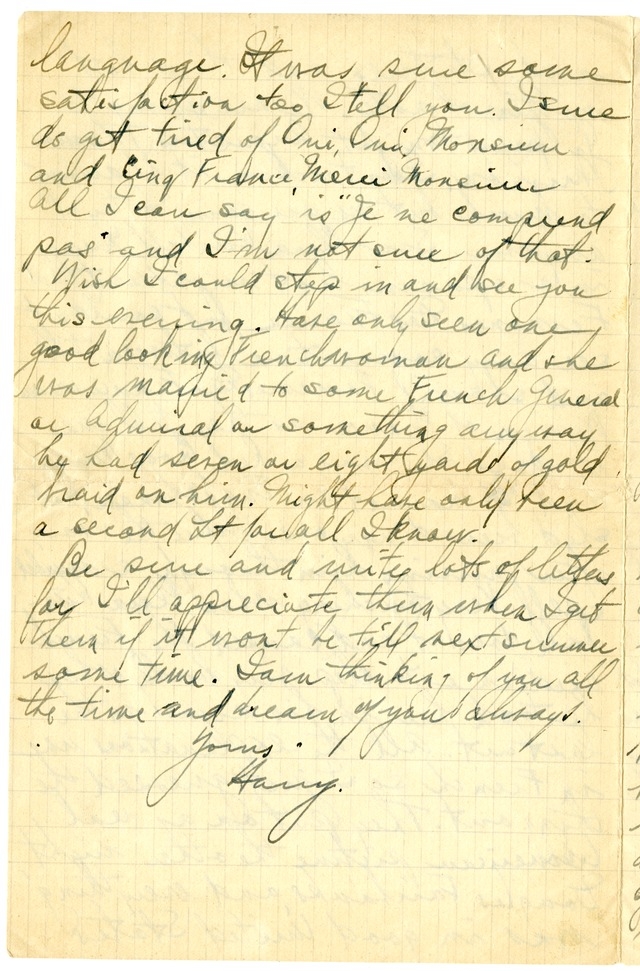 language. It was sure some
satisfaction too I tell you. I sure
do get tired of Oui, Oui, Monsieur
and cinq Francs Merci Monsieur
all I can say is "Je ne comprend
pas" and I'm not sure of that.
Wish I could step in and see you
this evening. Have only seen one
good looking Frenchwoman and she
was married to some French General
or Admiral or something anyway
he had seven or eight yards of gold
braid on him. Might have only been
a second Lt for all I know.
Be sure and write lots of letters
for I'll appreciate them when I get
them if it wont be till next summer
some time. I am thinking of you all
the time and dream of you always.
Yours.
Harry.